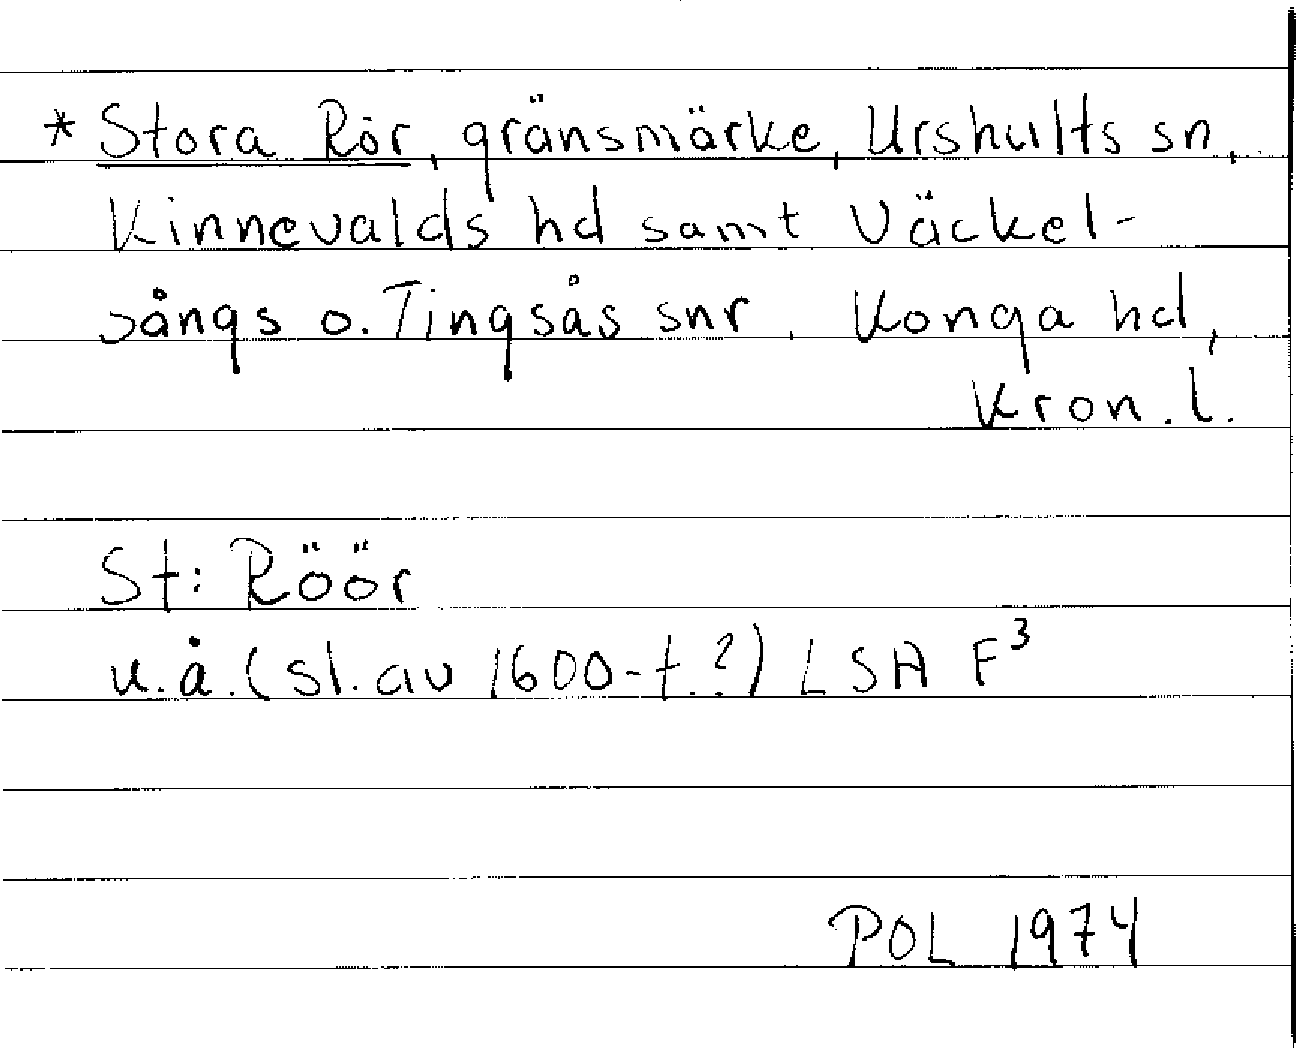 * Stora Rör, gränsmärke, Urshults sn,
Kinnevalds hd samt Väckel-
sångs o. Tingsås snr, Konga hd,
Kron. l.
St: Röör
u.å. (sl. av 1600-t.?) LSA F³
POL 1974